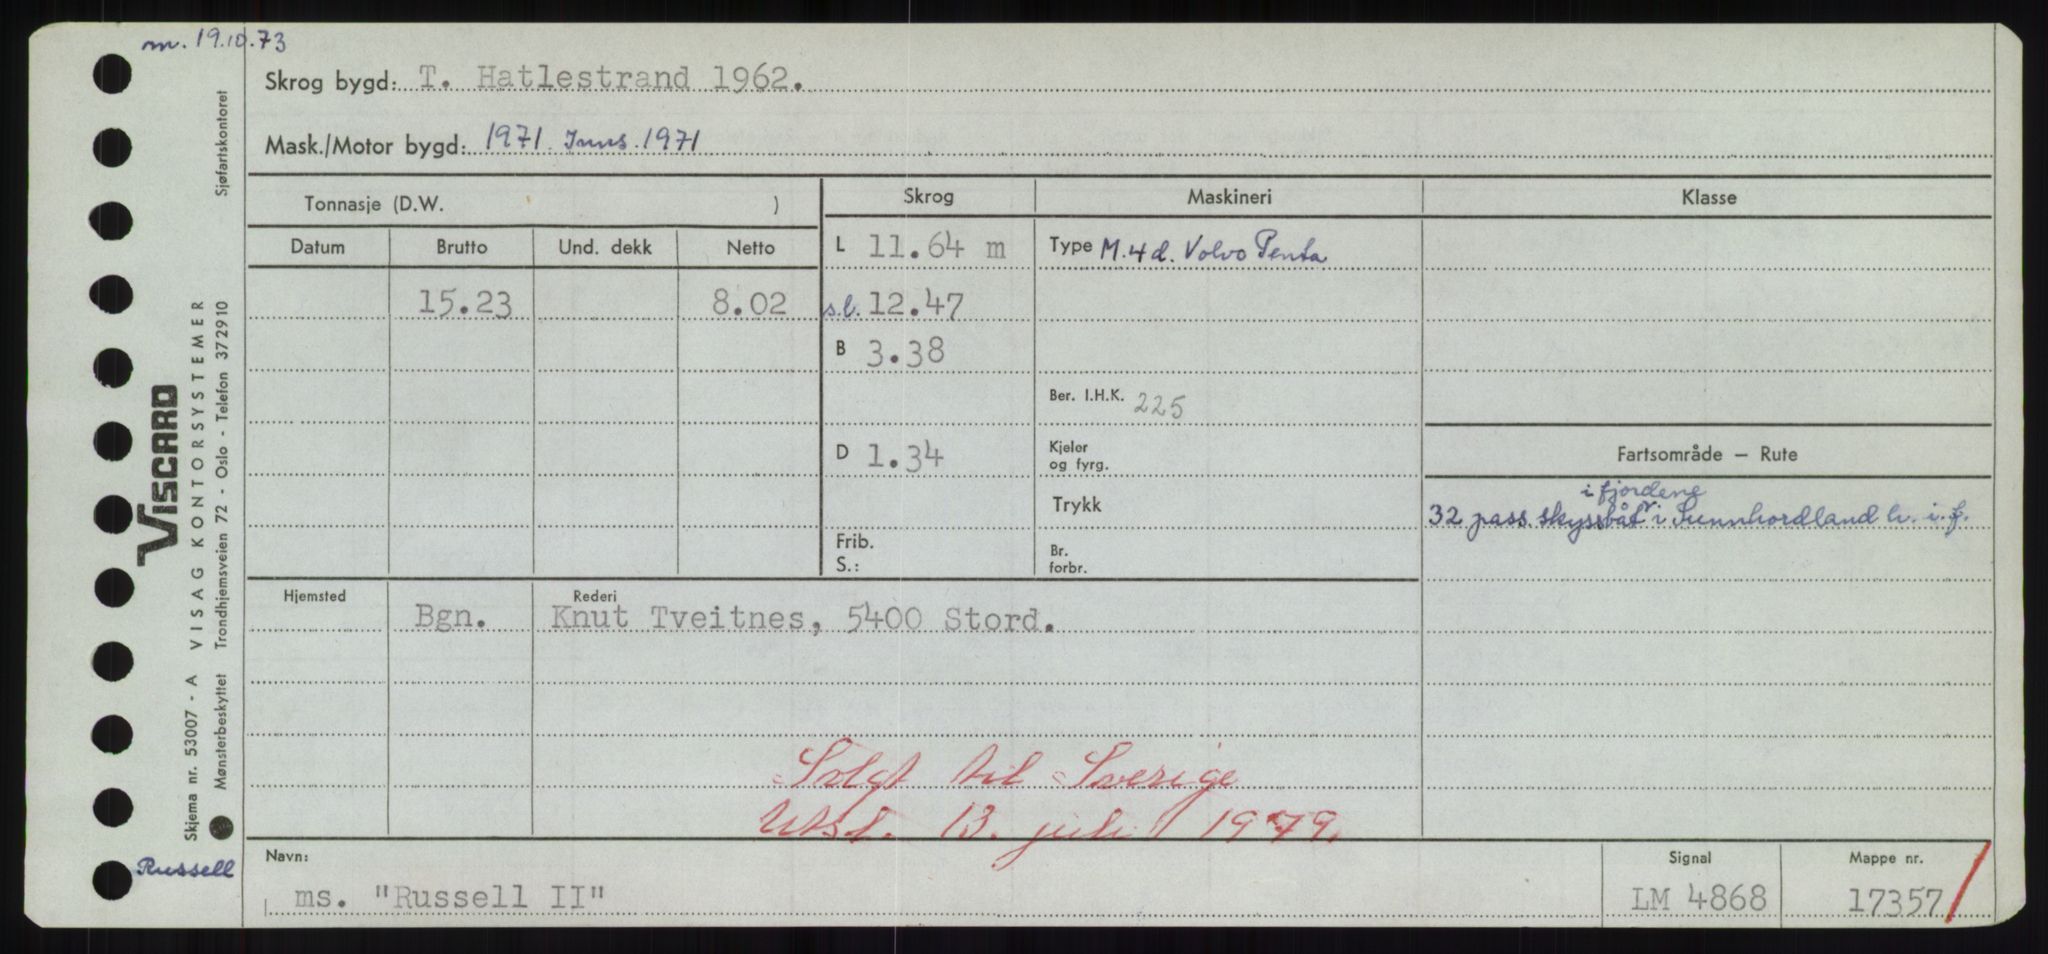 m. 19.10.73
Skrog bygd: T. Hatlestrand 1962.
Mask./Motor bygd: 1971. Inns. 1971
Tonnasje (D.W. )
Skrog
Maskineri
Klasse
Datum Brutto Und. dekk Netto
L 11.64 m
Type M.4d. Volvo Penta
15.23 8.02
s.l. 12.47
B 3.38
Ber. I.H.K. 225
D 1.34
Kjeler
og fyrg.
Fartsområde – Rute
Trykk
i fjordene
32 pass. skyssbåt i Sunnhordland h. i. f.
Frib.
S.:
Br.
forbr.
Hjemsted Bgn.
Rederi
Knut Tveitnes, 5400 Stord.
Solgt til Sverige
Utsl. 13. juli 1979.
Navn:
ms. "Russell II"
Signal
LM 4868
Mappe nr.
17357
Russell
Sjøfartskontoret
VISCARD
VISAG KONTORSYSTEMER
Trondhjemsveien 72 - Oslo - Telefon 372910
Skjema nr. 53007 - A
Mønsterbeskyttet